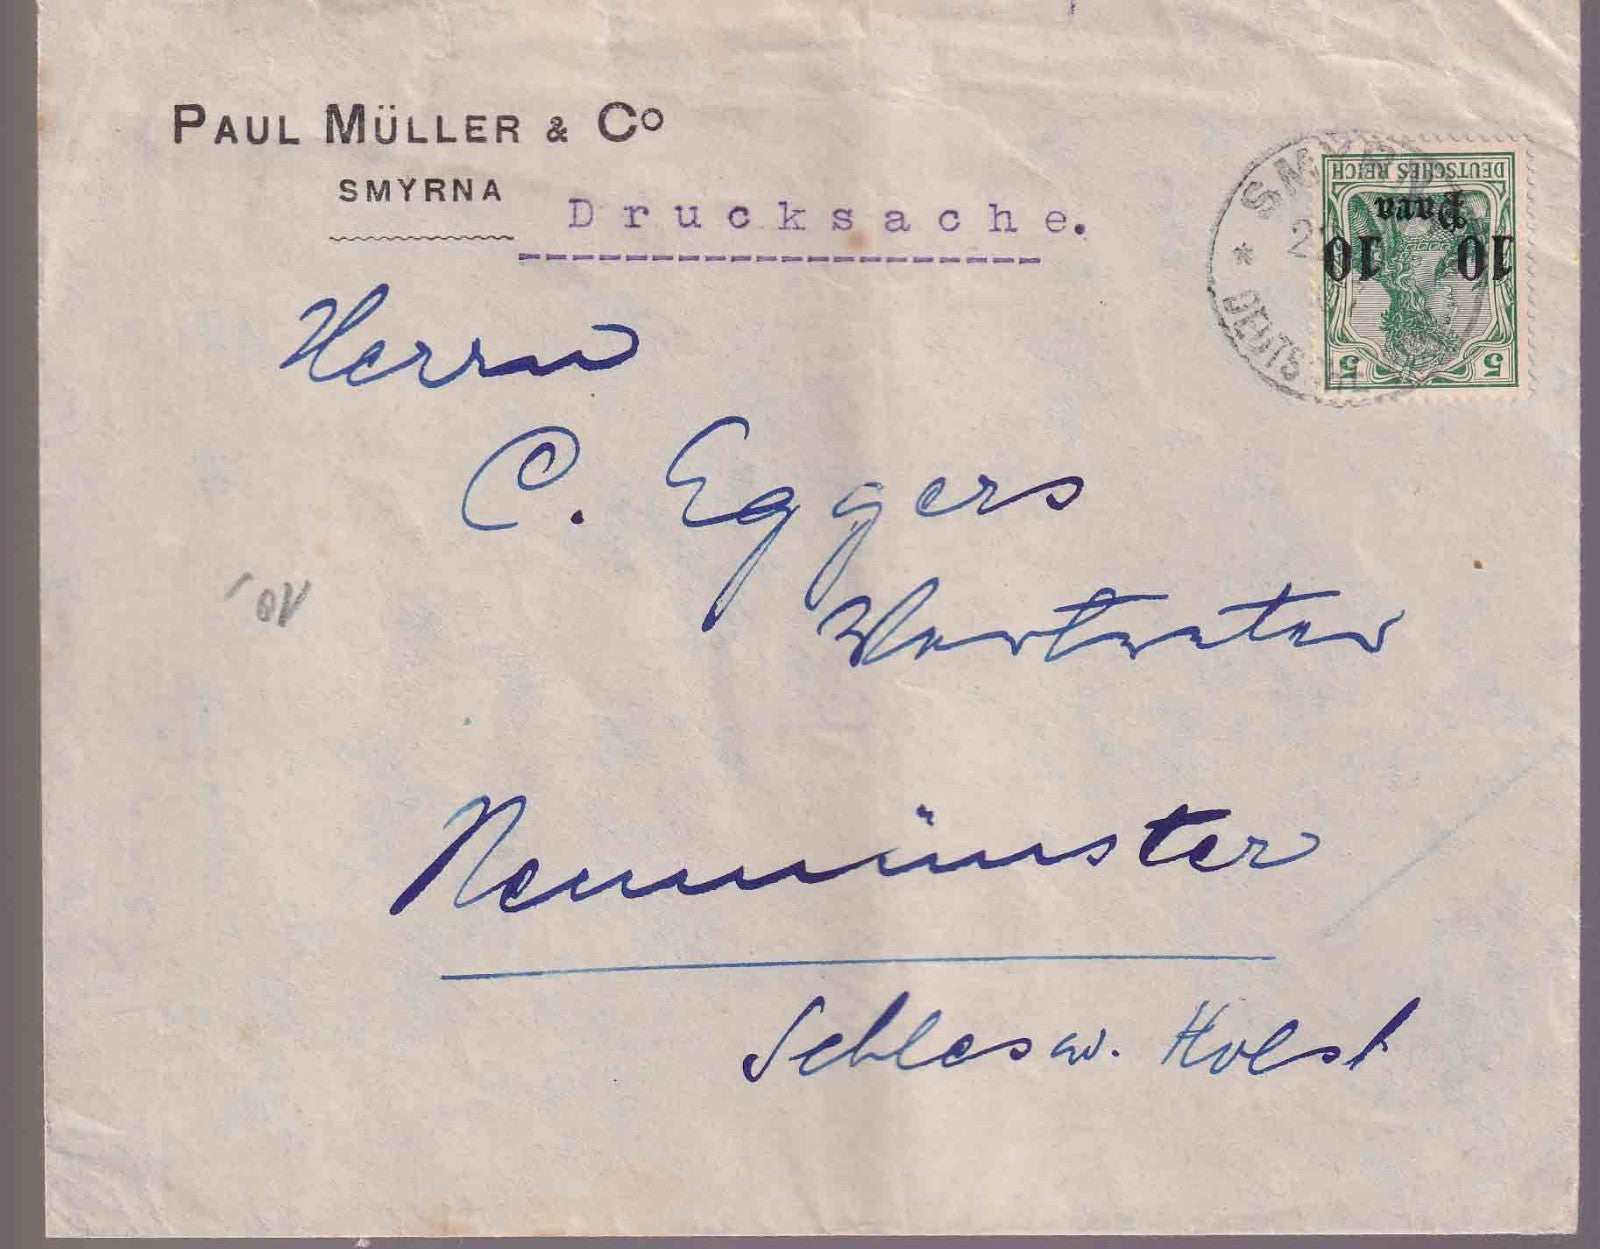 PAUL MÜLLER & Co
SMYRNA
Drucksache.
SMYRNA
DEUTSCHE
DEUTSCHES REICH
10 Para 10
5 5
Herrn
C. Eggers
Vertreter
Neumünster
Schlesw. Holst